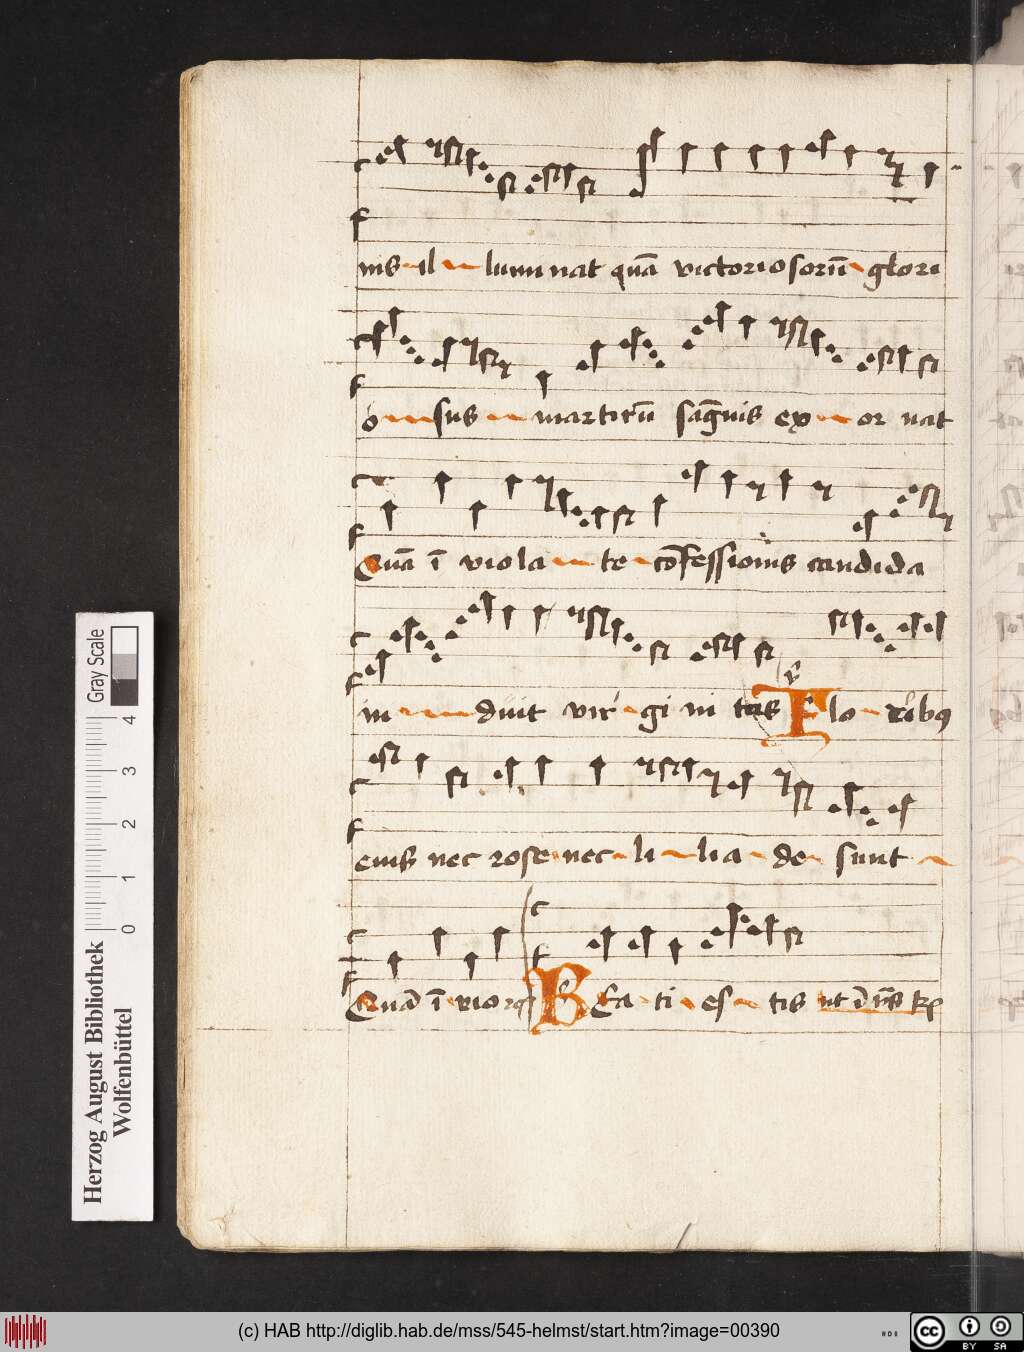 nis il luminat quā victoriosorū glori
o sus martirū sāgwnis exornat
Quā ī viola te cōfessionis candida
in duit virgini tas Floribꝰ
eius nec rose nec lilia de sunt
Quā ī vio BEa ti es tis ut
Gray Scale
4
3
2
1
0
Herzog August Bibliothek
Wolfenbüttel
(c) HAB http://diglib.hab.de/mss/545-helmst/start.htm?image=00390
cc
BY SA